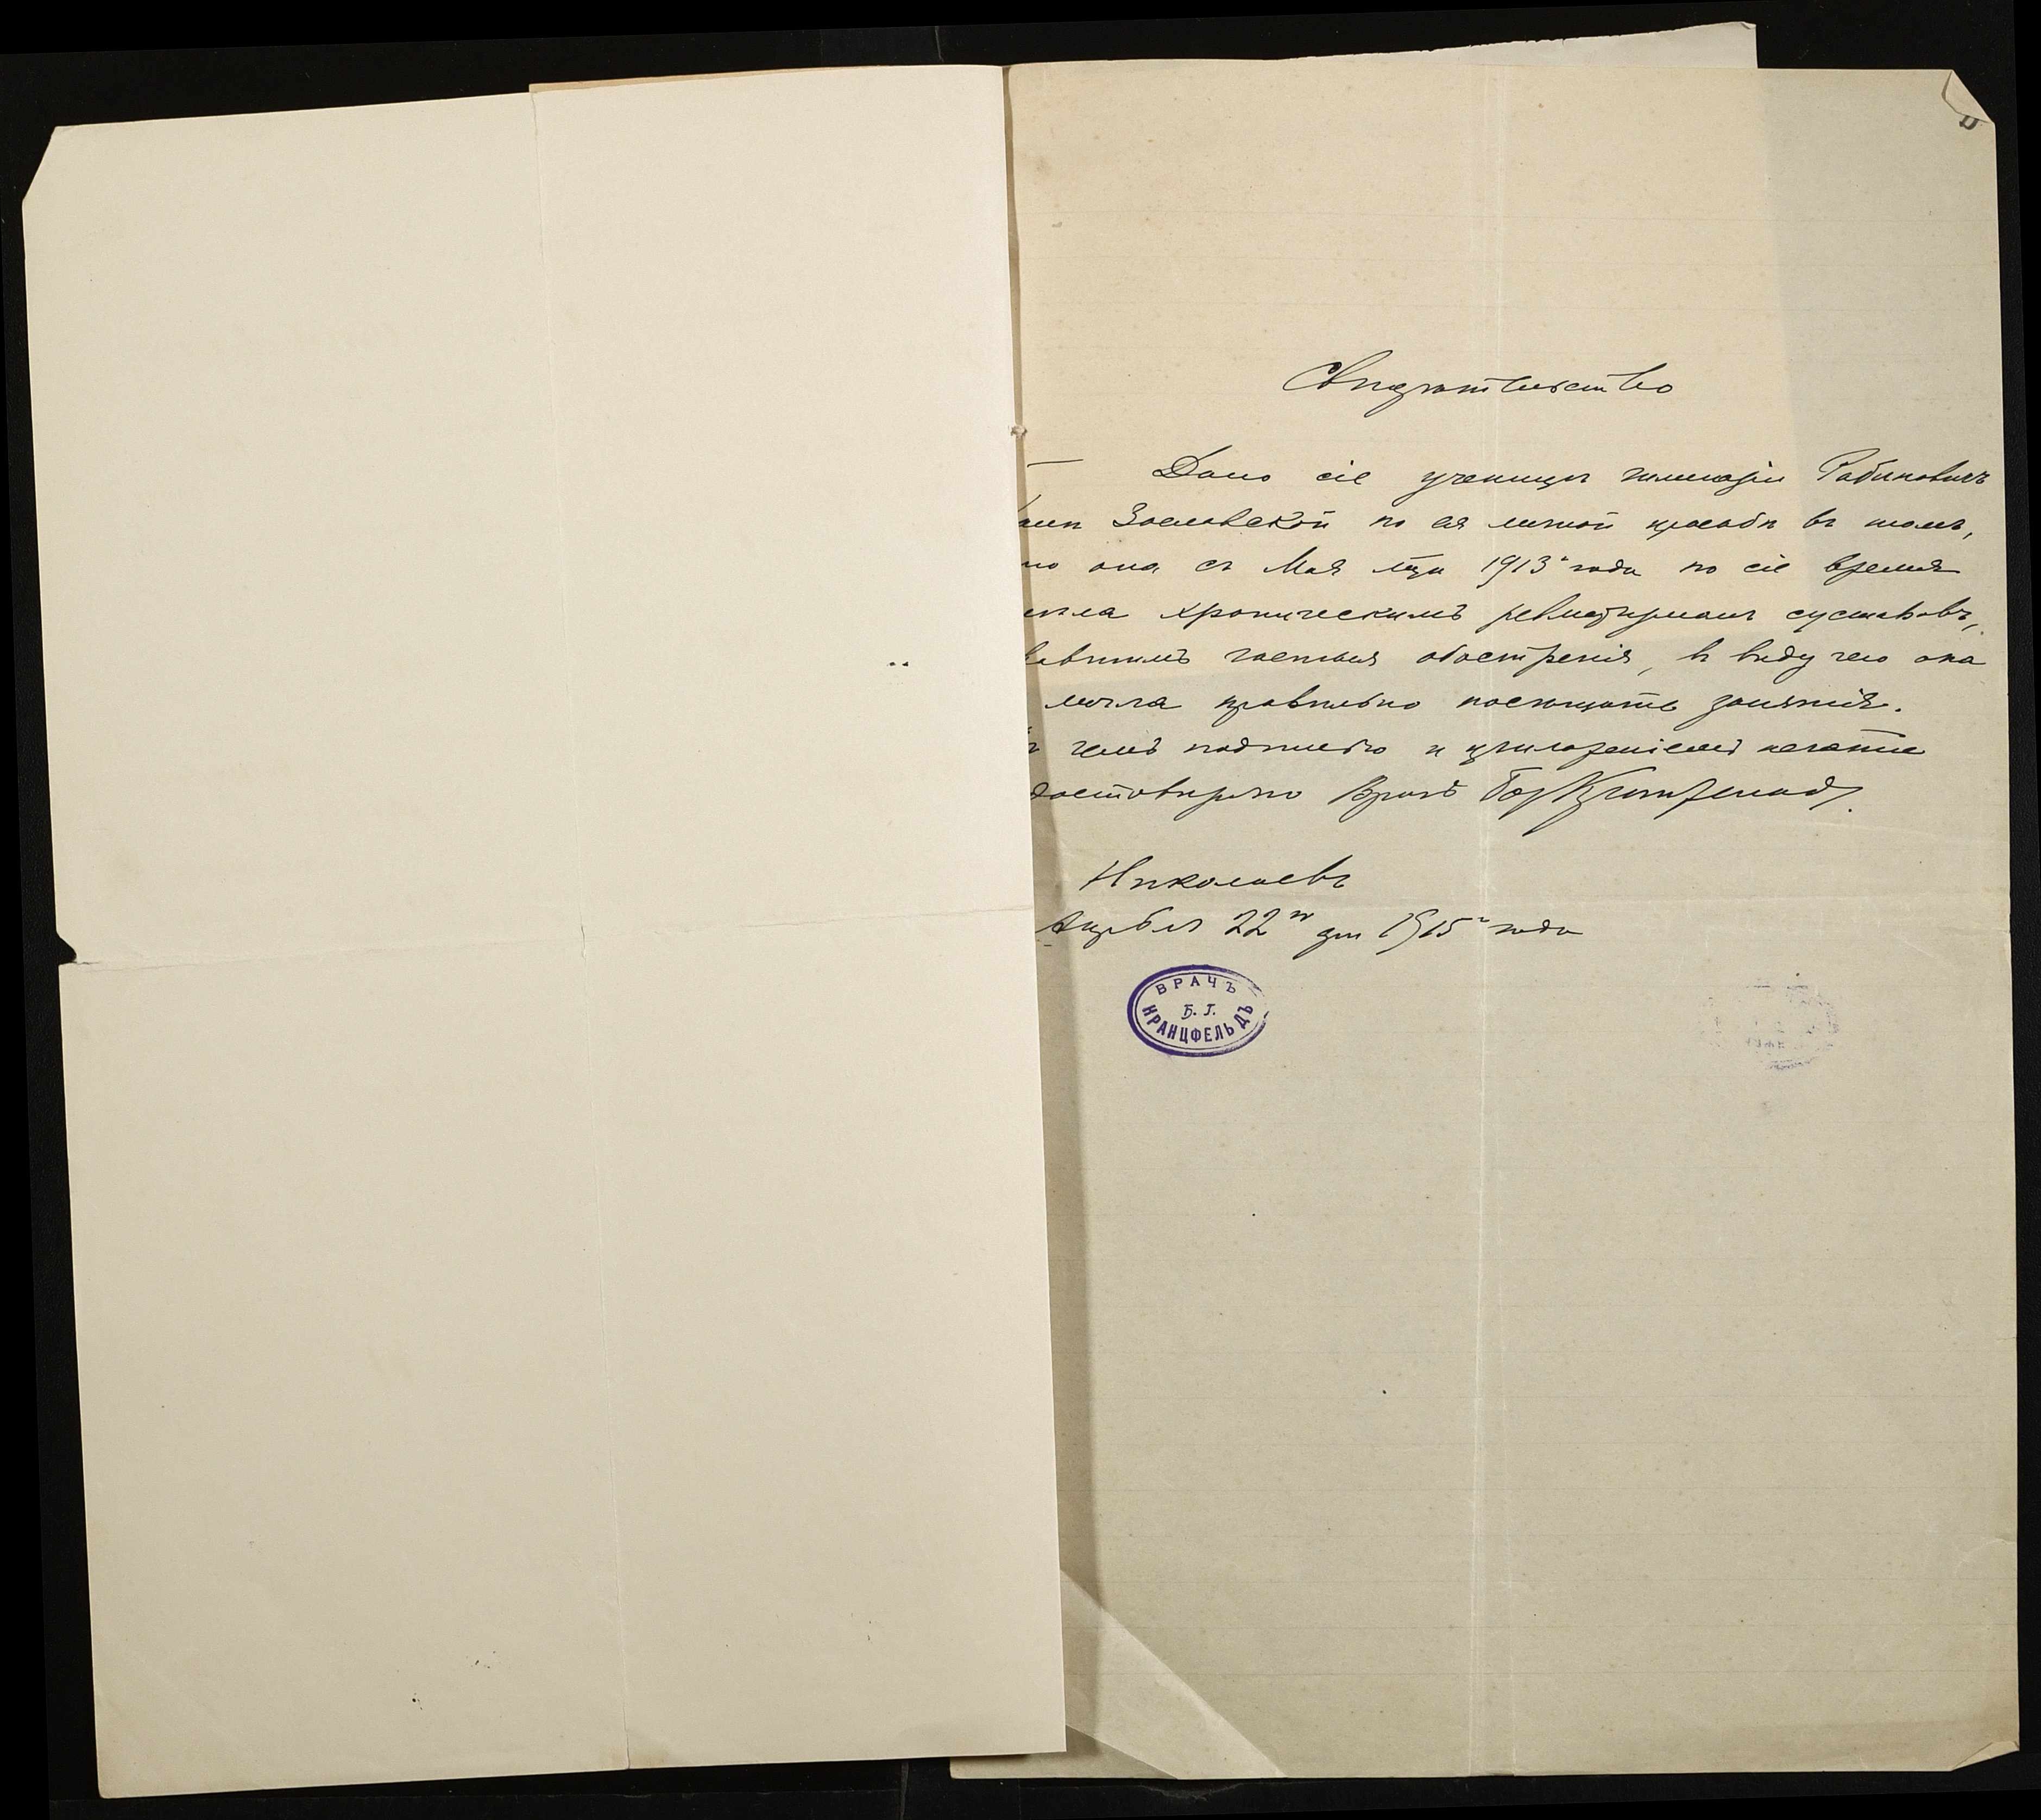 Свидѣтельство
Дано сіе ученицѣ гимназіи Рабиновичъ
Заславской по ея личной просьбѣ въ томъ,
она съ Мая мца 1913г года по сіе время
хроническимъ ревматизмомъ суставовъ,
частыя обостренія, въ виду чего она
могла правильно посѣщать занятія.
чемъ подписью и приложеніемъ печати
достовѣряю Врачъ
Николаевъ
Апрѣля 22го дня 1915г года
ВРАЧЪ
Б. Г.
КРАНЦФЕЛЬДЪ